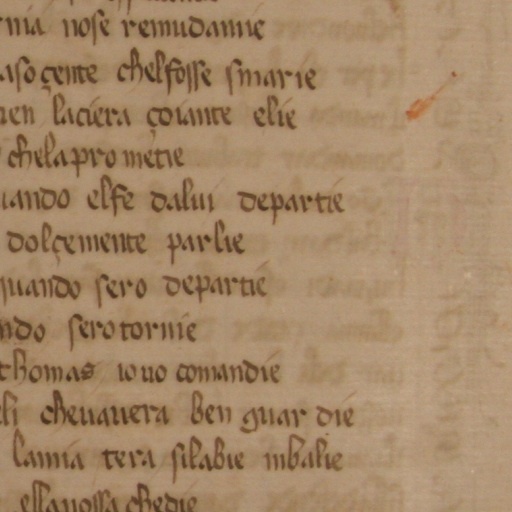 nia nose remudanie
aso çente chelfosse smarie
ren laciera çoiante elie
chelaprometie
uando elfe dalui departie
dolçemente parlie
quando sero departie
ndo serotornie
thomas iouo comandie
eli cheuauera ben guardie
lamia tera silabie inbalie
ellauossa chedie